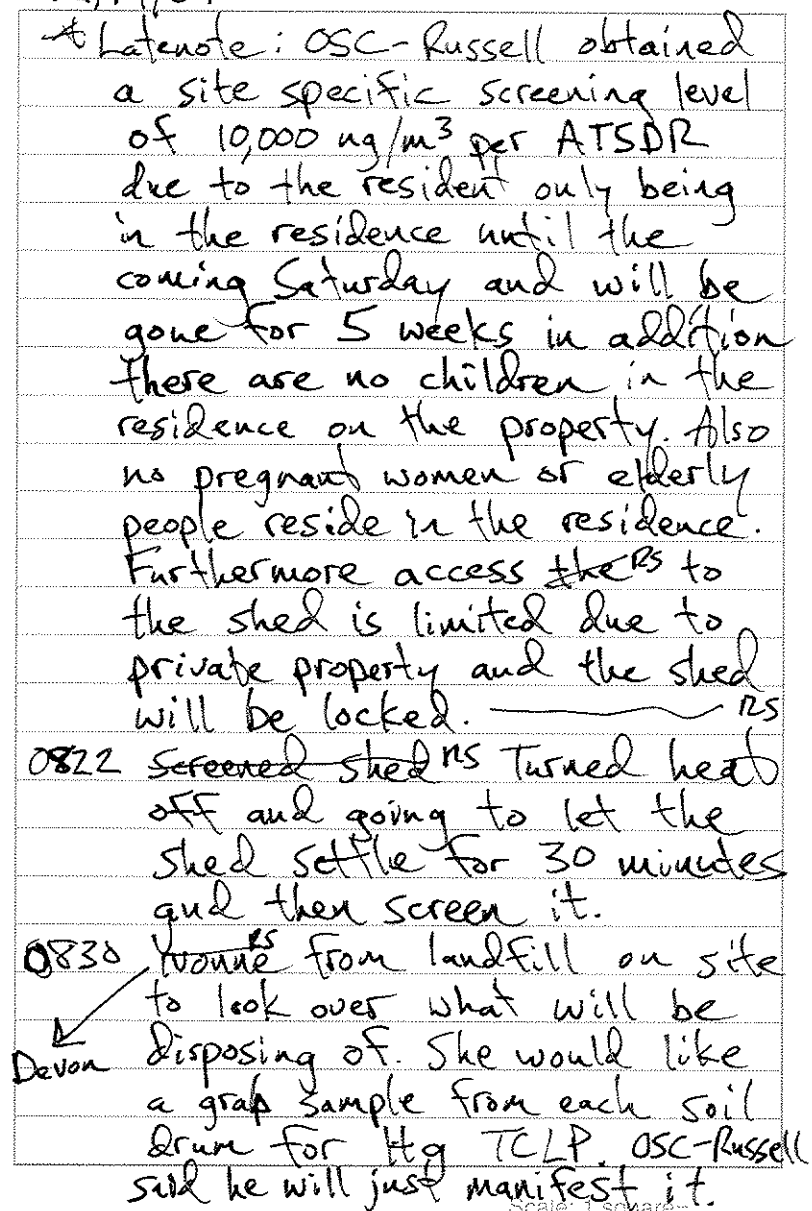 * Latenote: OSC-Russell obtained
a site specific screening level
of 10,000 ng/m³ per ATSDR
due to the resident only being
in the residence until the
coming Saturday and will be
gone for 5 weeks in addition
there are no children in the
residence on the property. Also
no pregnant women or elderly
people reside in the residence.
Furthermore access the RS to
the shed is limited due to
private property and the shed
will be locked. RS
0822 Screened shed RS Turned heat
off and going to let the
shed settle for 30 minutes
and then screen it.
0830 Yvonne RS from landfill on site
to look over what will be
Devon disposing of. She would like
a grab sample from each soil
drum for Hg TCLP. OSC-Russell
said he will just manifest it.
Scale: 1 square=